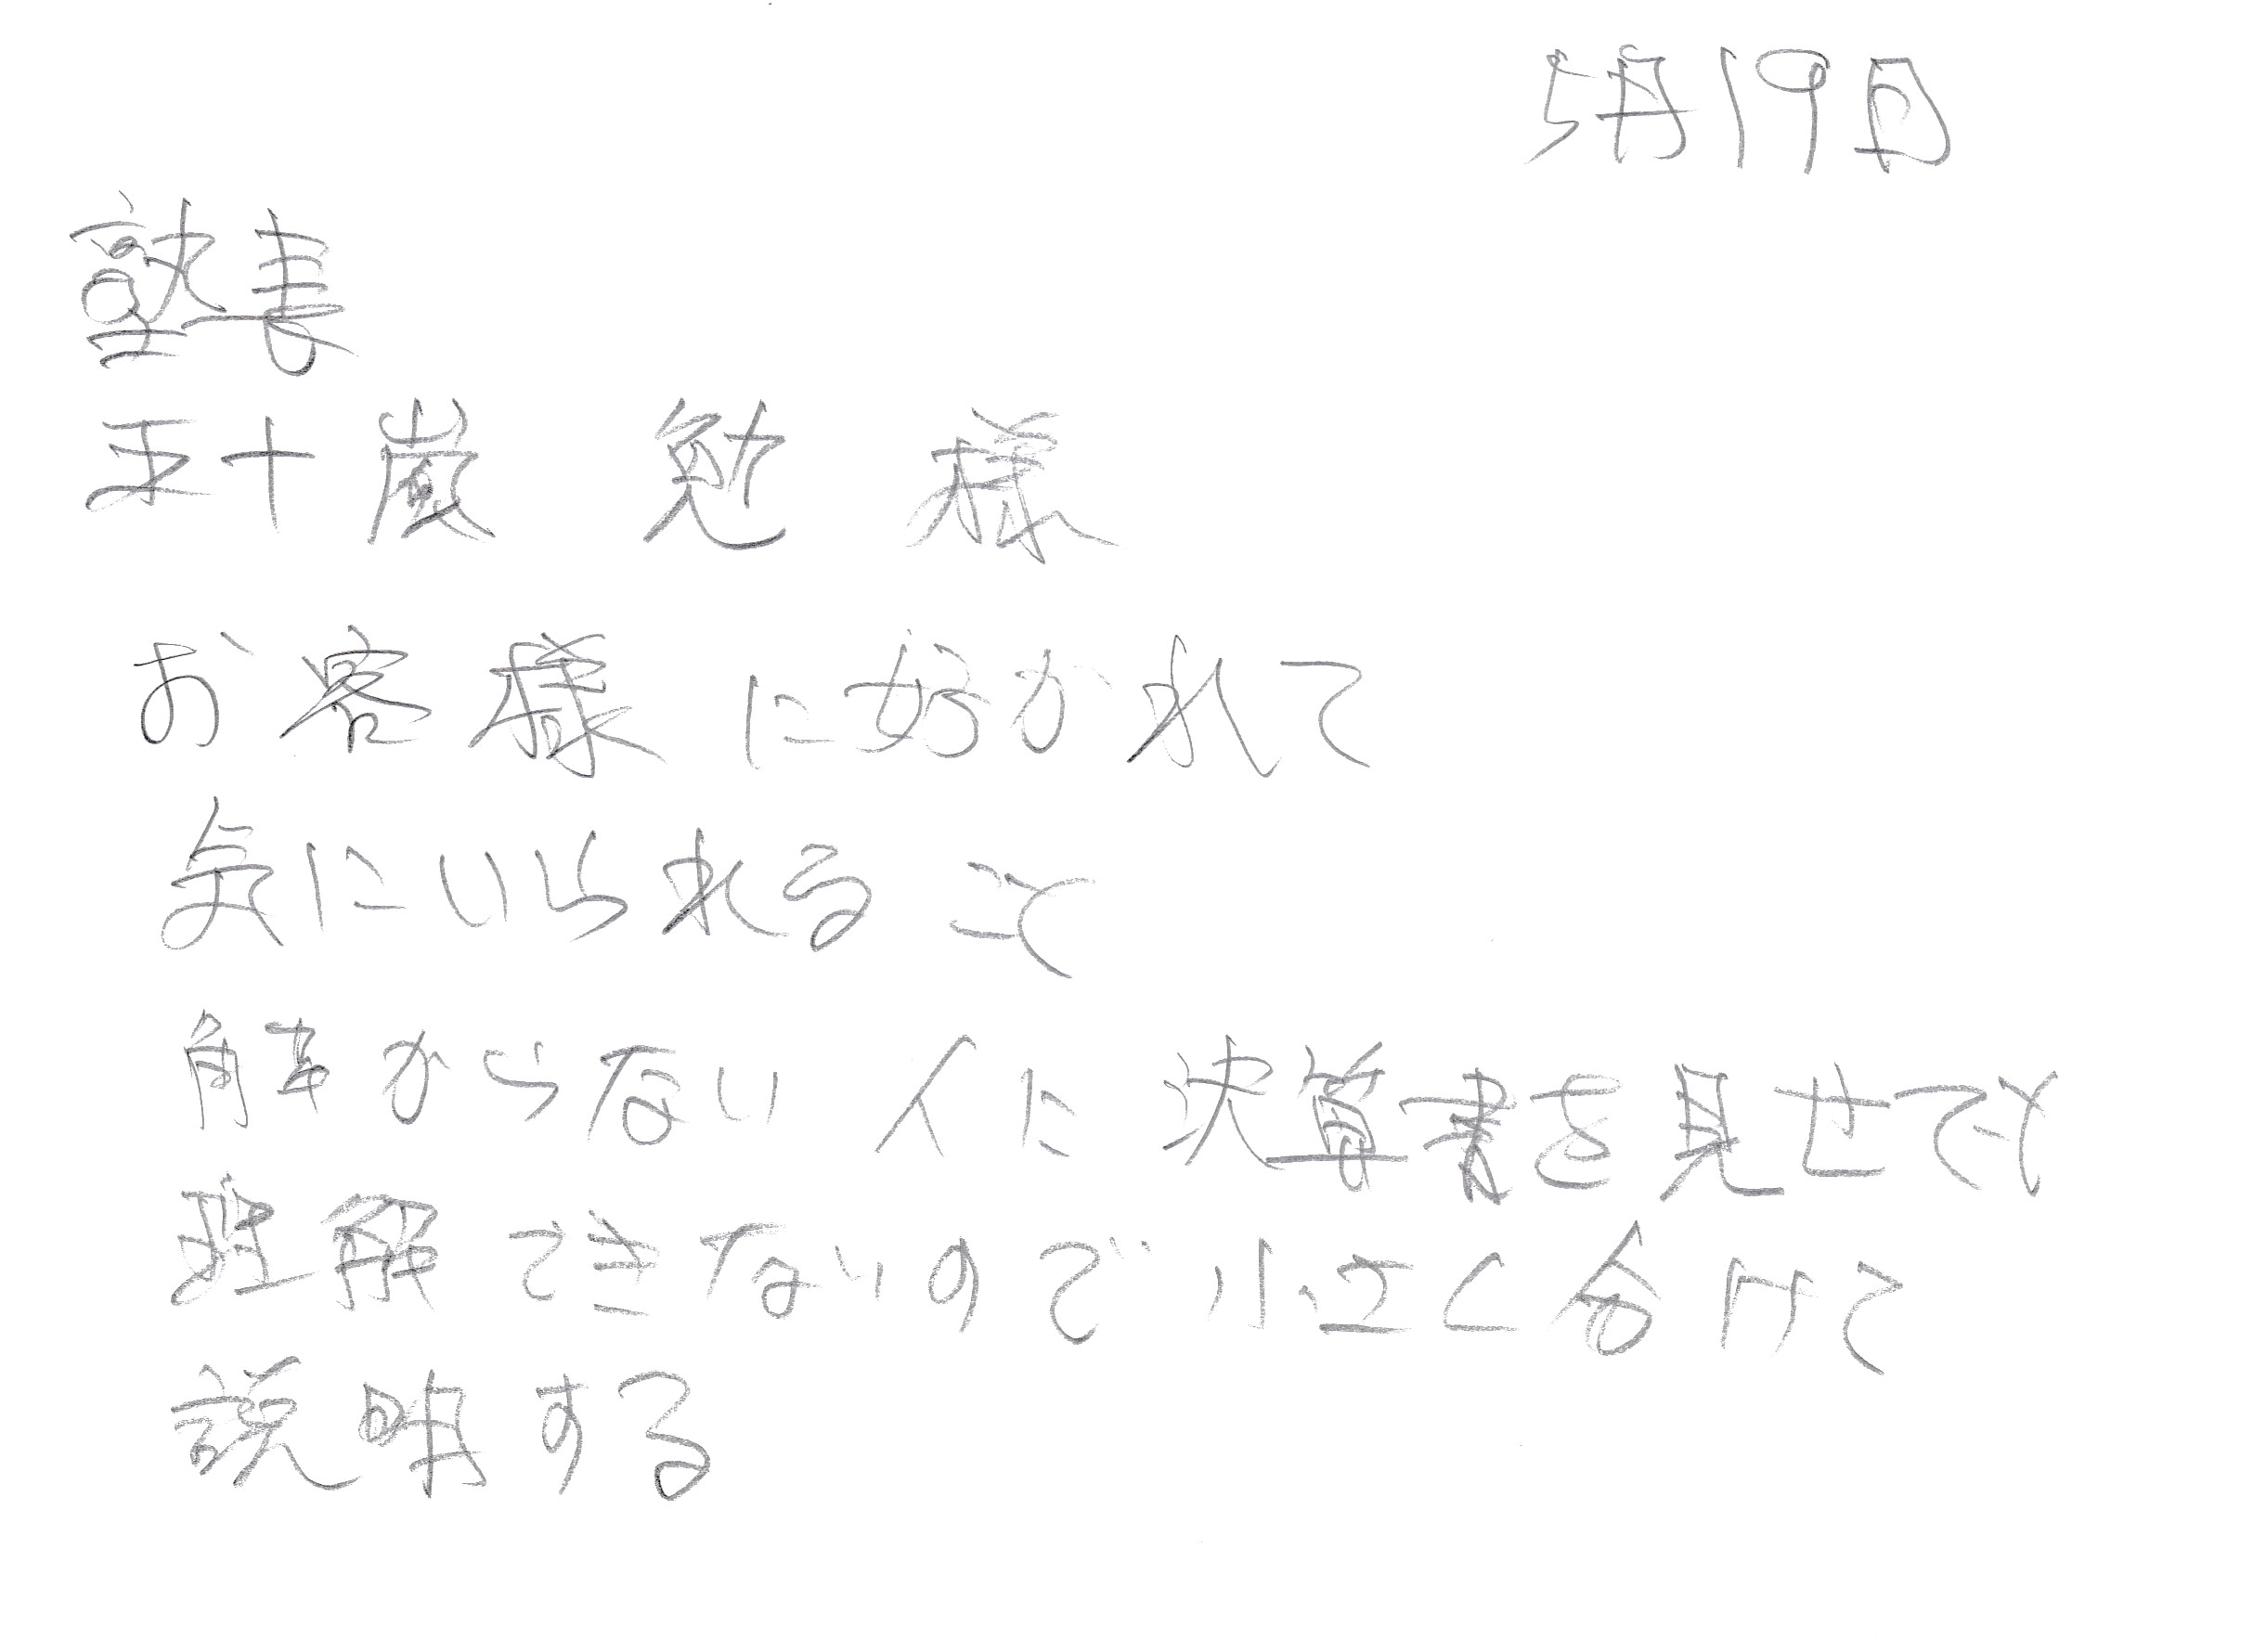 5月19日
塾長
五十嵐 勉 様
お客様に好かれて
気にいられること
解からない人に決算書を見せても
理解できないので小さく分けて
説明する